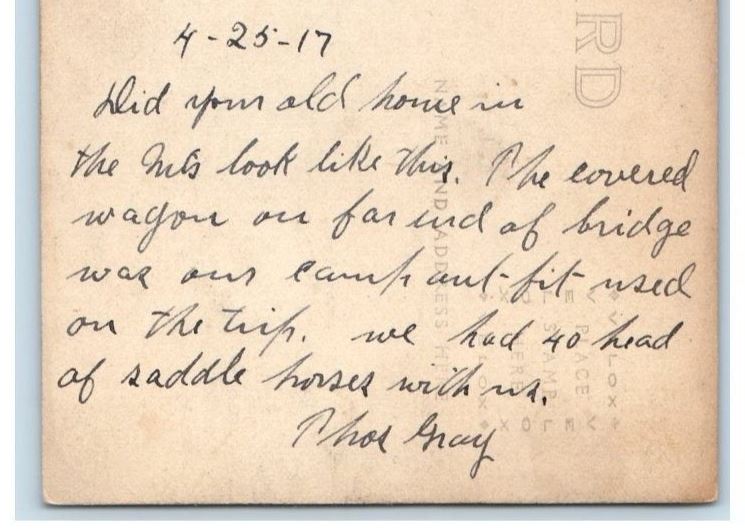 4-25-17
Did your old home in
the Mts look like this. The covered
wagon on far end of bridge
was our camp out-fit used
on the trip. we had 40 head
of saddle horses with us.
Thos Gray
RD
NAME AND ADDRESS HE
VELOX
PLACE
STAMP
HERE
VELOX